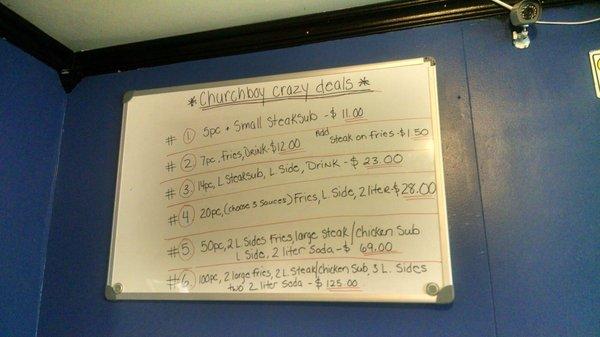 * Churchboy crazy deals *
# 1 5pc + Small steak sub - $ 11.00
# 2 7pc, fries, Drink - $12.00 Add steak on fries - $1.50
# 3 14pc, L steaksub, L. Side, Drink - $ 23.00
# 4 20pc, (choose 3 sauces) Fries, L. Side, 2 liter - $28.00
# 5 50pc, 2 L Sides Fries, large steak/chicken Sub
L Side, 2 liter Soda - $ 69.00
# 6 100pc, 2 large fries, 2 L Steak/chicken Sub, 3 L. Sides
two 2 liter Soda - $ 125.00